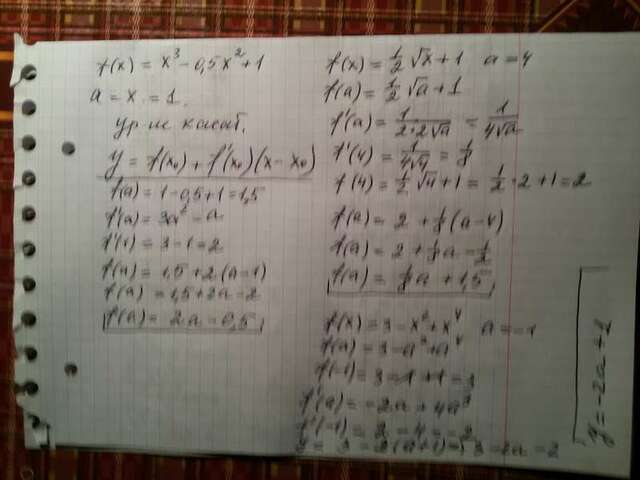 f(x) = x³ - 0,5x² + 1
a = x = 1
ур-ие касат.
y = f(x₀) + f'(x₀)(x - x₀)
f(a) = 1 - 0,5 + 1 = 1,5
f'(a) = 3a² - a
f'(1) = 3 - 1 = 2
f(a) = 1,5 + 2(a - 1)
f(a) = 1,5 + 2a - 2
f(a) = 2a - 0,5
f(x) = 1/2 √x + 1 a = 4
f(a) = 1/2 √a + 1
f'(a) = 1/(2·2√a) = 1/(4√a)
f'(4) = 1/(4√4) = 1/8
f(4) = 1/2 √4 + 1 = 1/2 · 2 + 1 = 2
f(a) = 2 + 1/8 (a - 4)
f(a) = 2 + 1/8 a - 1/2
f(a) = 1/8 a + 1,5
f(x) = 3 - x² + x⁴ a = -1
f(a) = 3 - a² + a⁴
f(-1) = 3 - 1 + 1 = 3
f'(a) = -2a + 4a³
f'(-1) = 2 - 4 = -2
y = 3 - 2(a + 1) = 3 - 2a - 2
y = -2a + 1